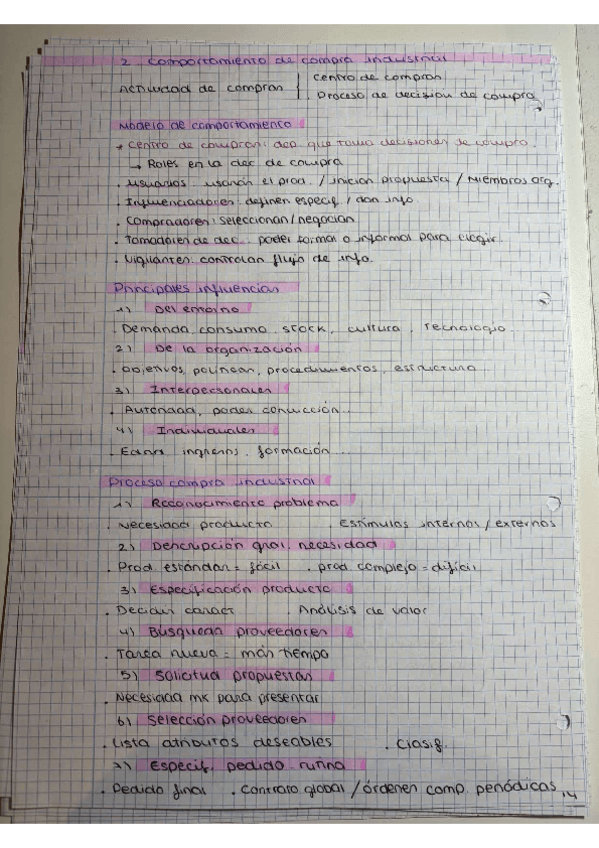 2. Comportamiento de compra industrial
Actividad de compras | Centro de compras
| Proceso de decisión de compra
Modelo de comportamiento
* Centro de compras: dep que toma decisiones de compra.
→ Roles en la dec de compra
. Usuarios: usarán el prod. / inician propuesta / Miembros org.
. Influenciadores: definen especif / dan info.
. Compradores: seleccionan / negocian
. Tomadores de dec.: poder formal o informal para elegir.
. Vigilantes: controlan flujo de info.
Principales influencias
1) Del entorno
. Demanda, consumo, stock, cultura, tecnología
2) De la organización
. Objetivos, políticas, procedimientos, estructura
3) Interpersonales
. Autoridad, poder convicción...
4) Individuales
. Edad, ingresos, formación...
Proceso compra industrial
1) Reconocimiento problema
. Necesidad producto . Estímulos internos / externos
2) Descripción gral. necesidad
. Prod. estándar = fácil . prod complejo = difícil
3) Especificación producto
. Decidir caract . Análisis de valor
4) Búsqueda proveedores
. Tarea nueva = más tiempo
5) Solicitud propuestas
. Necesidad mk para presentar
6) Selección proveedores
. Lista atributos deseables . Clasif.
7) Especif. pedido rutina
. Pedido final . Contrato global / órdenes comp. periódicas
14